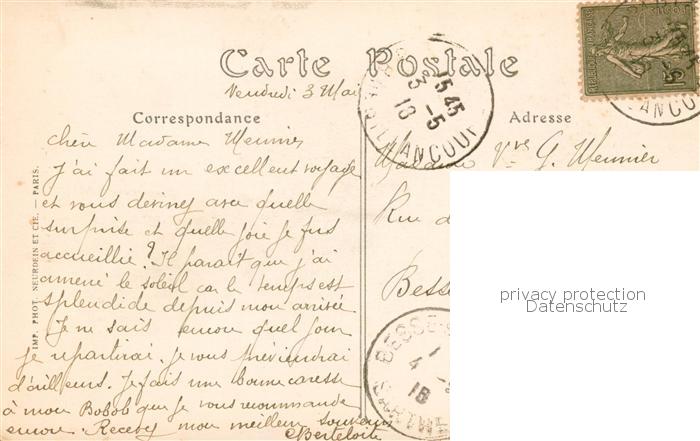 Carte Postale
Vendredi 3 Mai
Correspondance
Adresse
Chère Madame Meunier
J'ai fait un excellent voyage
et vous devinez avec quelle
surprise et quelle joie je fus
accueillie? Il parait que j'ai
amené le soleil car le temps est
splendide depuis mon arrivée
Je ne sais encore quel jour
je repartirai. je vous préviendrai
d'ailleurs. Je fais une bonne caresse
à mon Bobob que je vous recommande
encore. Recevez mon meilleur souvenir
Madame Vve G. Meunier
Rue d
Besse
IMP. PHOT. NEURDEIN ET CIE. — PARIS.
15 45
3 -5
18
BILLANCOURT
REPUBLIQUE FRANÇAISE
15
LANCOU
BESSE-S
1
4
18
privacy protection
Datenschutz